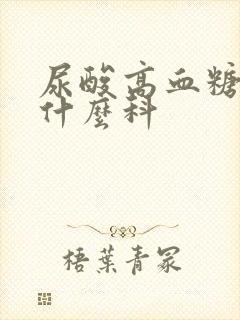 尿酸高血糖
什麼科
梧葉青冢